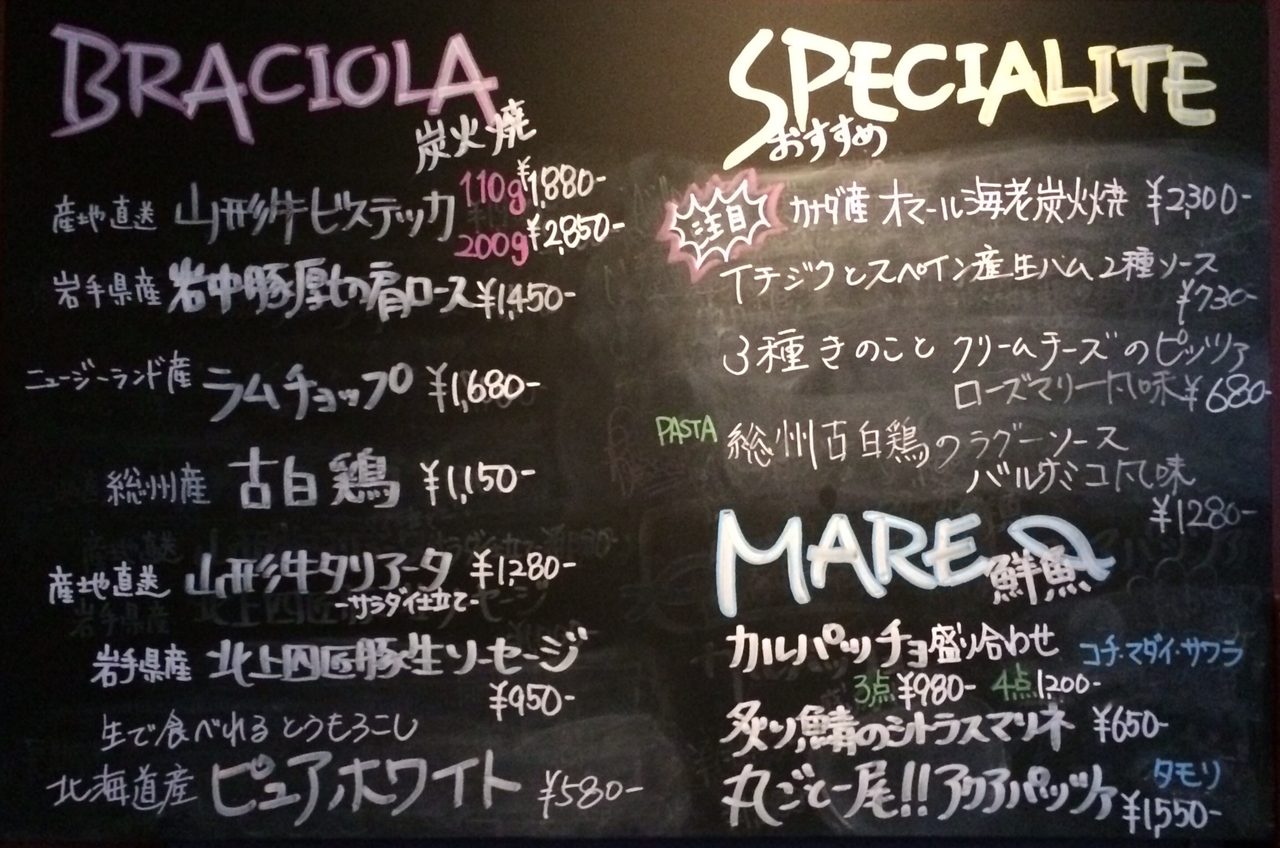 BRACIOLA
炭火焼
産地直送 山形牛ビステッカ 110g ¥1,880-
200g ¥2,850-
岩手県産 岩中豚厚切肩ロース ¥1,450-
ニュージーランド産 ラムチョップ ¥1,680-
総州産 古白鶏 ¥1,150-
産地直送 山形牛タリアータ ¥1,280-
-サラダ仕立て-
岩手県産 北上四匠豚生ソーセージ
¥950-
生で食べれるとうもろこし
北海道産 ピュアホワイト ¥580-
SPECIALITE
おすすめ
注目 カナダ産 オマール海老炭火焼 ¥2,300-
イチジクとスペイン産生ハム2種ソース
¥730-
3種きのこと クリームチーズのピッツァ
ローズマリー風味 ¥680-
PASTA 総州古白鶏のラグーソース
バルサミコ風味
¥1280-
MARE
鮮魚
カルパッチョ盛り合わせ コチ・マダイ・サワラ
3点 ¥980- 4点 1,200-
炙り鯖のシトラスマリネ ¥650-
丸ごと一尾!!アクアパッツァ タモリ
¥1,550-